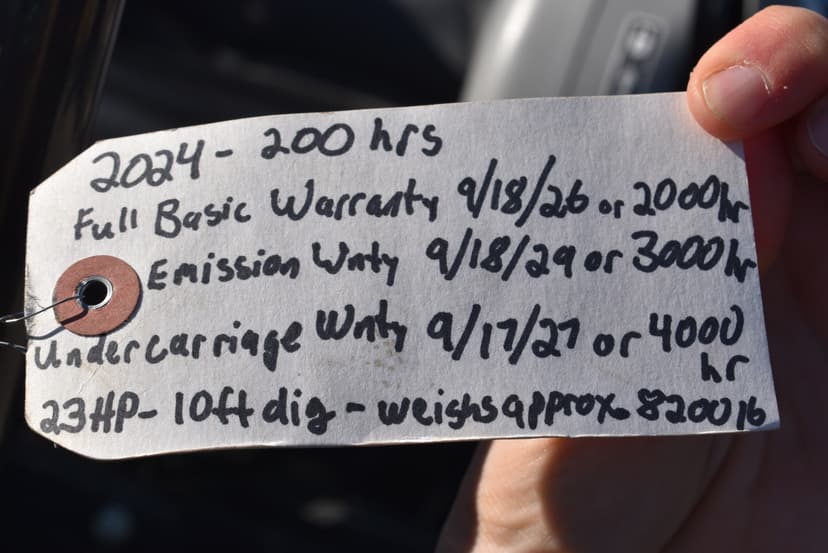 2024 - 200 hrs
Full Basic Warranty 9/18/26 or 2000hr
Emission Wnty 9/18/29 or 3000hr
Undercarriage Wnty 9/17/27 or 4000
hr
23HP- 10ft dig - weighs approx. 8200lb